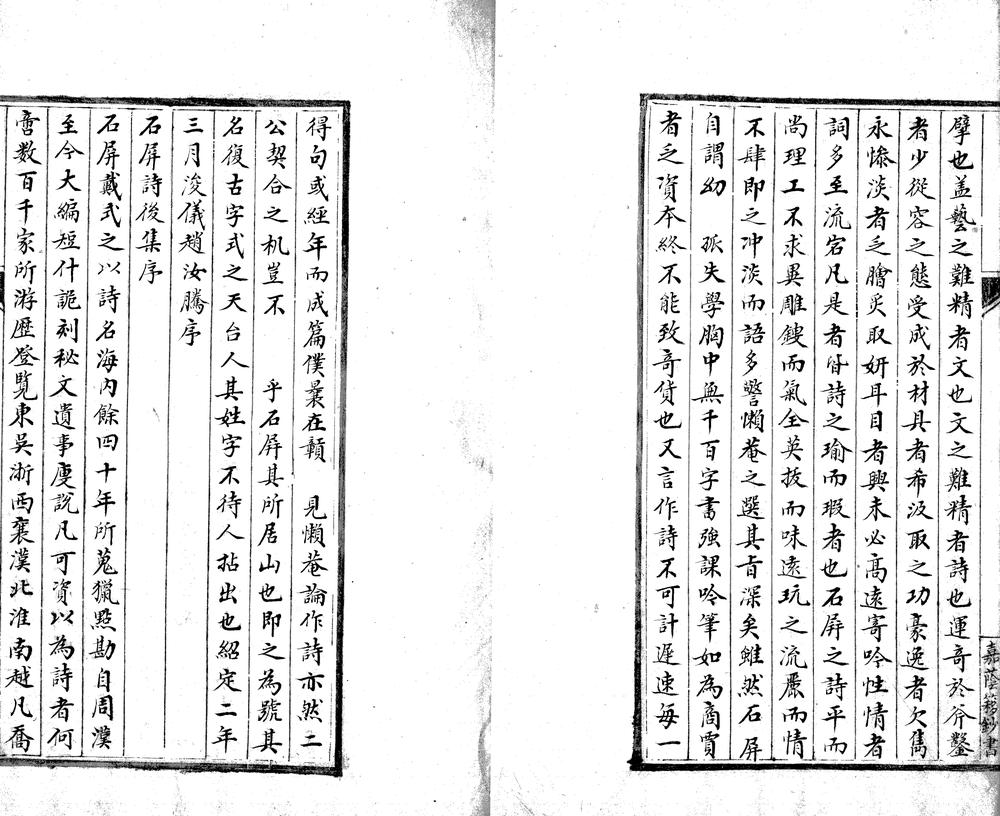 擘也盖藝之難精者文也文之難精者詩也運奇於斧鑿
者少從容之態受成於材具者希汲取之功豪逸者欠雋
永慘淡者乏膾炙取妍耳目者興未必高遠寄吟性情者
詞多至流宕凡是者皆詩之瑜而瑕者也石屏之詩平而
尚理工不求異雕鎪而氣全英拔而味遠玩之流麗而情
不肆即之冲淡而語多警懶菴之選其旨深矣雖然石屏
自謂幼 孤失學胸中無千百字書強課吟筆如為商賈
者乏資本終不能致奇貨也又言作詩不可計遲速每一
嘉蔭簃鈔書
得句或經年而成篇僕曩在贑 見懶菴論作詩亦然二
公契合之机豈不 乎石屏其所居山也即之為號其
名復古字式之天台人其姓字不待人拈出也紹定二年
三月浚儀趙汝騰序
石屏詩後集序
石屏戴式之以詩名海內餘四十年所蒐獵點勘自周漢
至今大編短什詭刻秘文遺事廋說凡可資以為詩者何
啻数百千家所游歷登覽東吳浙西襄漢北淮南越凡喬